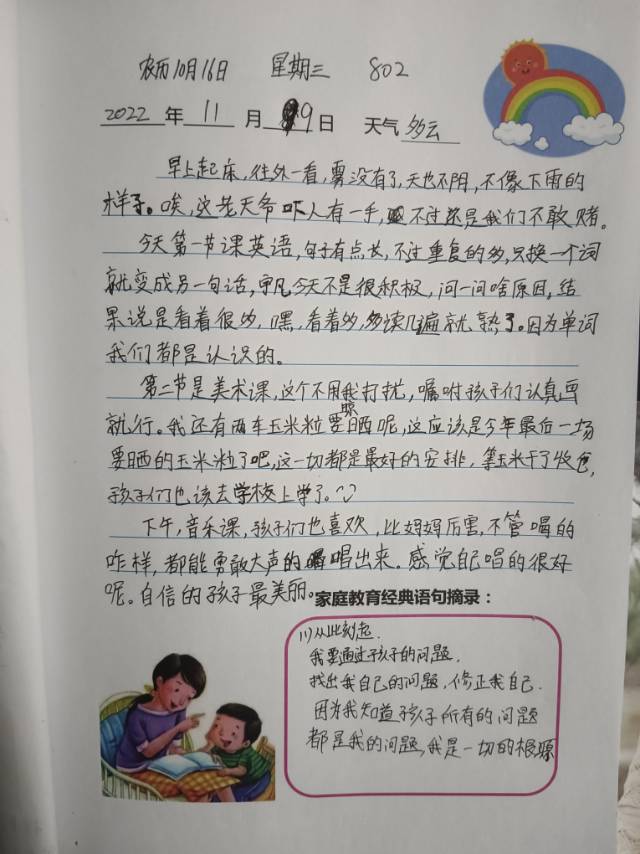 农历10月16日 星期三 802
2022 年 11 月 9 日 天气 多云
早上起床,往外一看,雾没有了,天也不阴,不像下雨的
样子。唉,这老天爷吓人有一手,不过还是我们不敢赌。
今天第一节课英语,句子有点长,不过重复的多,只换一个词
就变成另一句话,今天不是很积极,问一问啥原因,结
果说是看着很多,嘿,看着多,多读几遍就熟了。因为单词
我们都是认识的。
第二节是美术课,这个不用我打扰,嘱咐孩子们认真画
就行。我还有两车玉米粒要晾晒呢,这应该是今年最后一场
要晒的玉米粒了吧,这一切都是最好的安排,等玉米干了收仓,
孩子们也该去学校上学了。
下午,音乐课,孩子们也喜欢,比妈妈厉害,不管唱的
咋样,都能勇敢大声的唱出来。感觉自己唱的很好
呢。自信的孩子最美丽。
家庭教育经典语句摘录:
(1)从此刻起.
我要通过孩子的问题.
找出我自己的问题,修正我自己.
因为我知道孩子所有的问题
都是我的问题,我是一切的根源